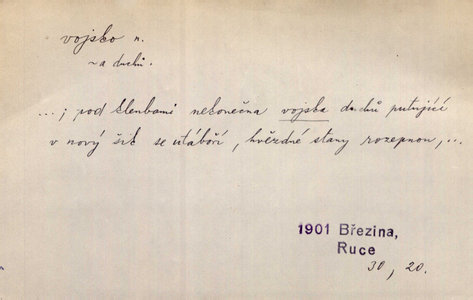 vojsko n.
~a duchů.
...; pod klenbami nekonečna vojska duchů putující
v nový šik se utáboří, hvězdné stany rozepnou,...
1901 Březina,
Ruce
30, 20.